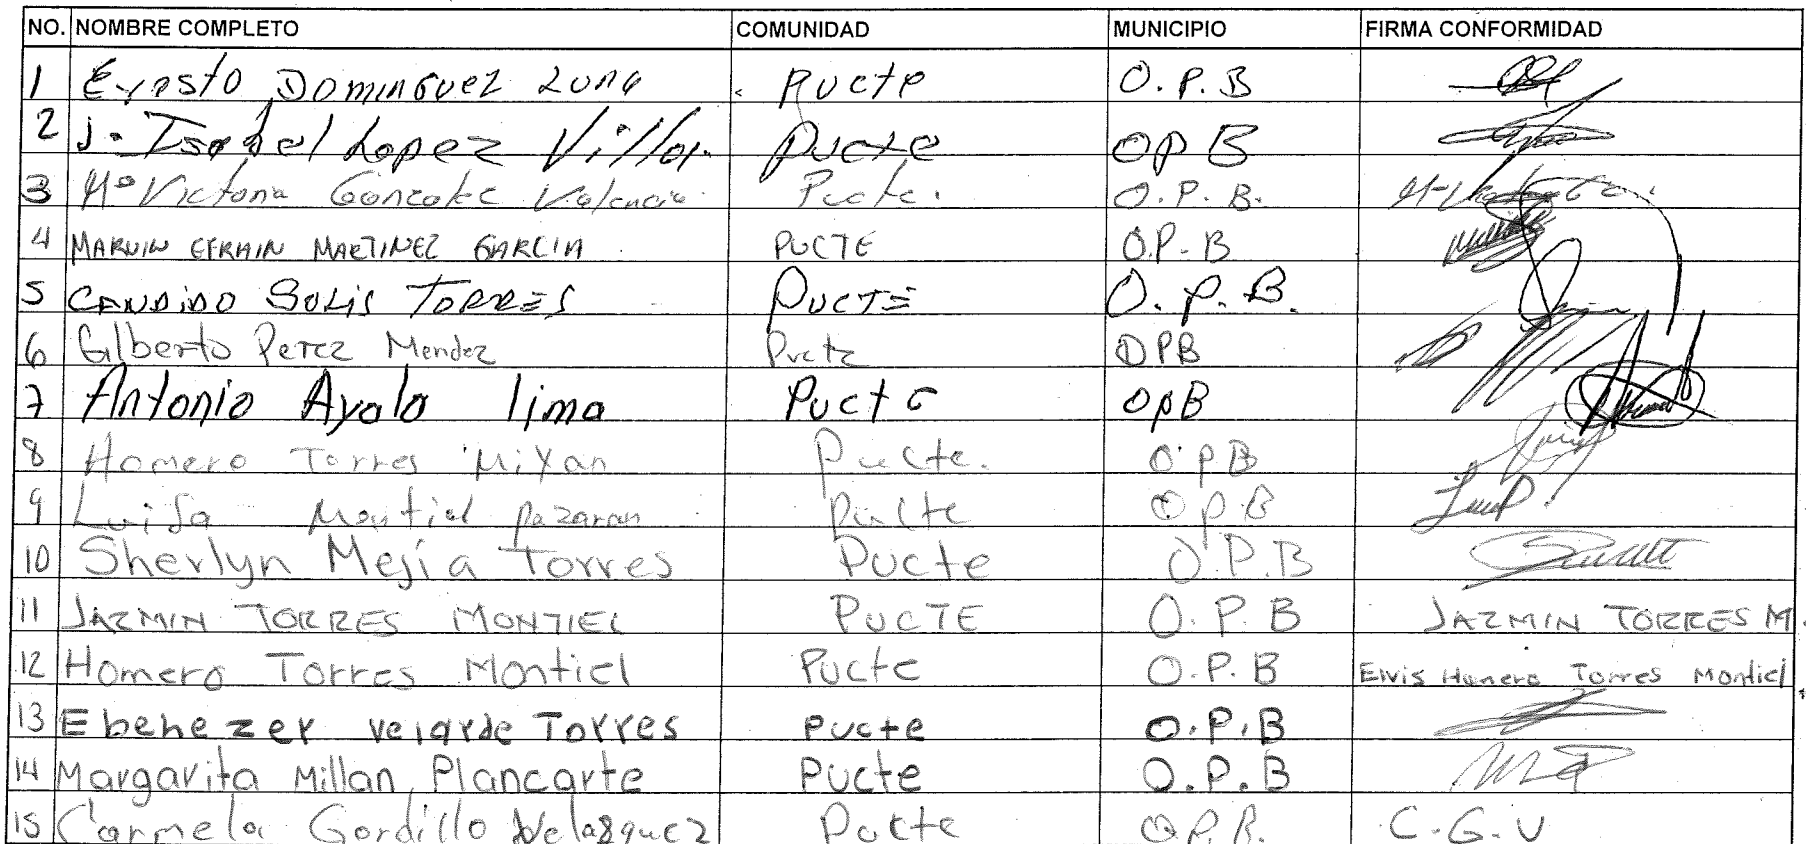 NO. NOMBRE COMPLETO COMUNIDAD MUNICIPIO FIRMA CONFORMIDAD
1 Evasto Dominguez Luna Pucte O.P.B
2 J. Isabel Lopez Villar. Pucte OPB
3 Mª Victoria Gonzalez Valencia Pucte. O.P.B.
4 MARVIN EFRAIN MARTINEZ GARCIA PUCTE O.P.B
5 CANDIDO SOLIS TORRES PUCTE O.P.B.
6 Gilberto Perez Mendez Pucte OPB
7 Antonio Ayala lima Pucte OPB
8 Homero Torres Mixan Pucte. O.P.B
9 Luisa Montiel pazaran Pucte O.P.B
10 Sherlyn Mejía Torres Pucte O.P.B
11 JAZMIN TORRES MONTIEL PUCTE O.P.B JAZMIN TORRES M.
12 Homero Torres Montiel Pucte O.P.B Elvis Homero Torres Montiel
13 Ebenezer velarde Torres Pucte O.P.B
14 Margarita Millan Plancarte Pucte O.P.B
15 Carmela Gordillo Velazquez Pucte O.P.B. C.G.V